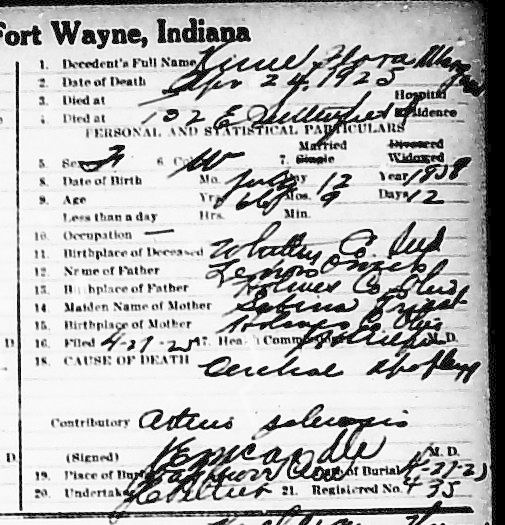 Fort Wayne, Indiana
1. Decedent's Full Name Flora
2. Date of Death Apr 24, 1925
3. Died at Hospital
4. Died at 132 E Residence
PERSONAL AND STATISTICAL PARTICULARS
Married Divorced
5. Sex F 6. W 7. Single Widowed
8. Date of Birth Mo. July Day 12 Year 1858
9. Age Yrs. 66 Mos. 9 Days 12
Less than a day Hrs. Min.
10. Occupation —
11. Birthplace of Deceased Whitley Co Ind
12. Name of Father
13. Birthplace of Father Holmes Co Ohio
14. Maiden Name of Mother Sabina
15. Birthplace of Mother Holmes Co Ohio
D. 16. Filed 4-27-25 17. Health M.D.
18. CAUSE OF DEATH
Cerebral Apoplexy
Contributory Arterio sclerosis
D. (Signed) M. D.
19. Place of Burial Date of Burial 4-27-25
20. Undertaker 21. Registered No. 435